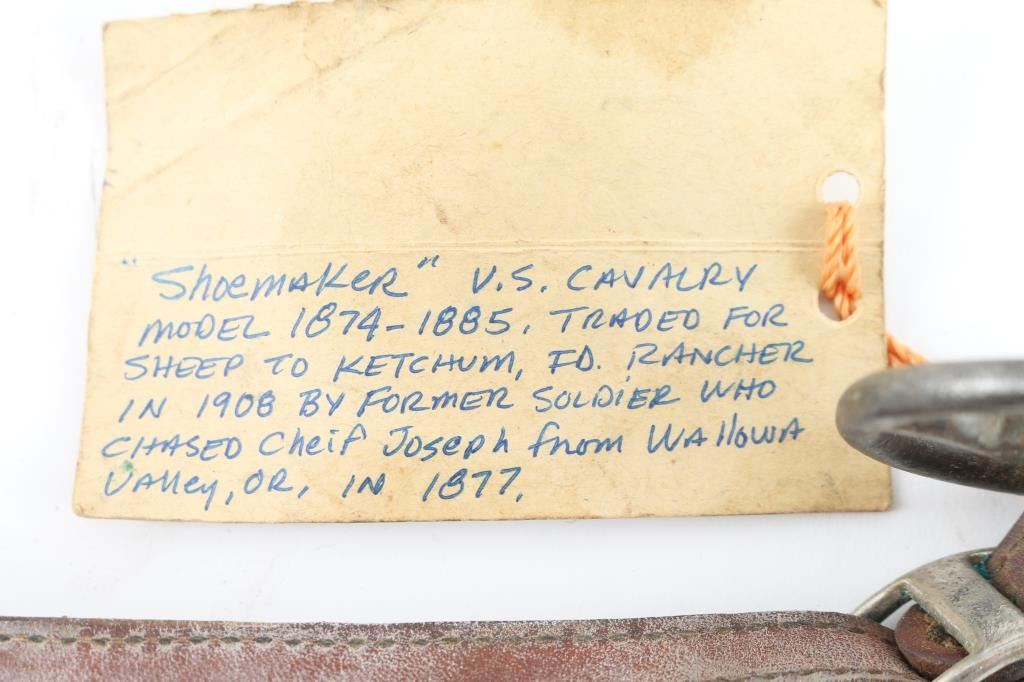 "Shoemaker" U.S. CAVALRY
MODEL 1874-1885. TRADED FOR
SHEEP TO KETCHUM, ID. RANCHER
IN 1908 BY FORMER SOLDIER WHO
CHASED Cheif Joseph from WAllOWA
VAlley, OR, IN 1877.